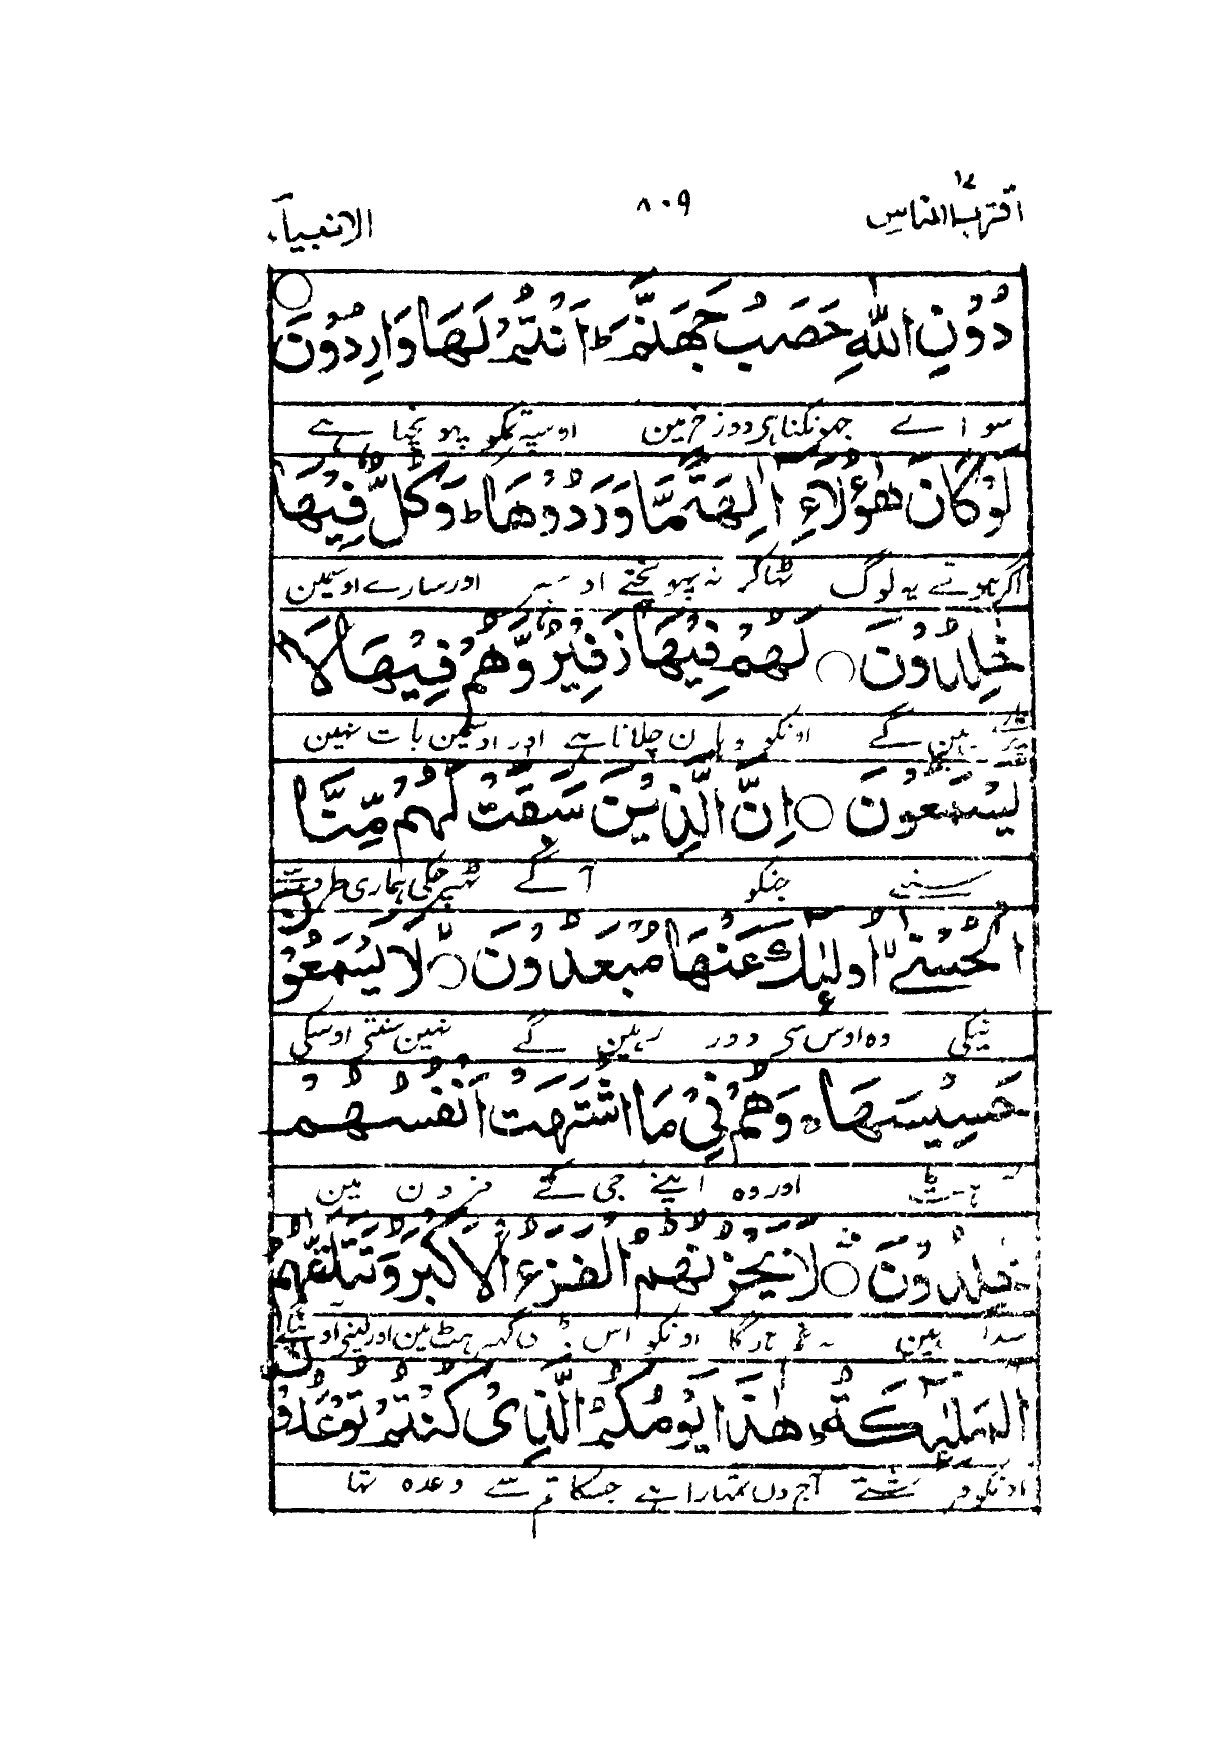 اقترب للناس ١٧ ٨٠٩ الانبیآء
دُوْنِ اللّٰهِ حَصَبُ جَهَنَّمَ ؕ اَنْتُمْ لَهَا وَارِدُوْنَ ○
سواے جھونکنا ہی دوزخ مین اوسپہ تمکو پہونچنا ہے
لَوْ كَانَ هٰۤؤُلَآءِ اٰلِهَةً مَّا وَرَدُوْهَا ؕ وَكُلٌّ فِيْهَا
اگر ہوتے یہ لوگ ٹھاکر نہ پہونچتے اوسپر اور سارے اوسمین
خٰلِدُوْنَ ○ لَهُمْ فِيْهَا زَفِيْرٌ وَّهُمْ فِيْهَا لَا
رہین گے اونکو وہان چلانا ہے اور اوسمین بات نہین
يَسْمَعُوْنَ ○ اِنَّ الَّذِيْنَ سَبَقَتْ لَهُمْ مِّنَّا
سنتے جنکو آگے ٹھہر چکی ہماری طرف سے
الْحُسْنٰٓى ۙ اُولٰٓئِكَ عَنْهَا مُبْعَدُوْنَ ۙ○ لَا يَسْمَعُوْنَ
نیکی وہ اوس سی دور رہین گے نہین سنتی اوسکی
حَسِيْسَهَا ۚ وَهُمْ فِيْ مَا اشْتَهَتْ اَنْفُسُهُمْ
اور وہ اپنے جی کے مزون مین
خٰلِدُوْنَ ۚ○ لَا يَحْزُنُهُمُ الْفَزَعُ الْاَكْبَرُ وَتَتَلَقّٰىهُمُ
سدا ہین نہ غم اونکو اس بڑی گھبراہٹ مین اور لینی اوینگے
الْمَلٰٓئِكَةُ ؕ هٰذَا يَوْمُكُمُ الَّذِيْ كُنْتُمْ تُوْعَدُوْنَ
اونکو فرشتے آج دن تمہارا ہے جسکا تم سے وعدہ تھا